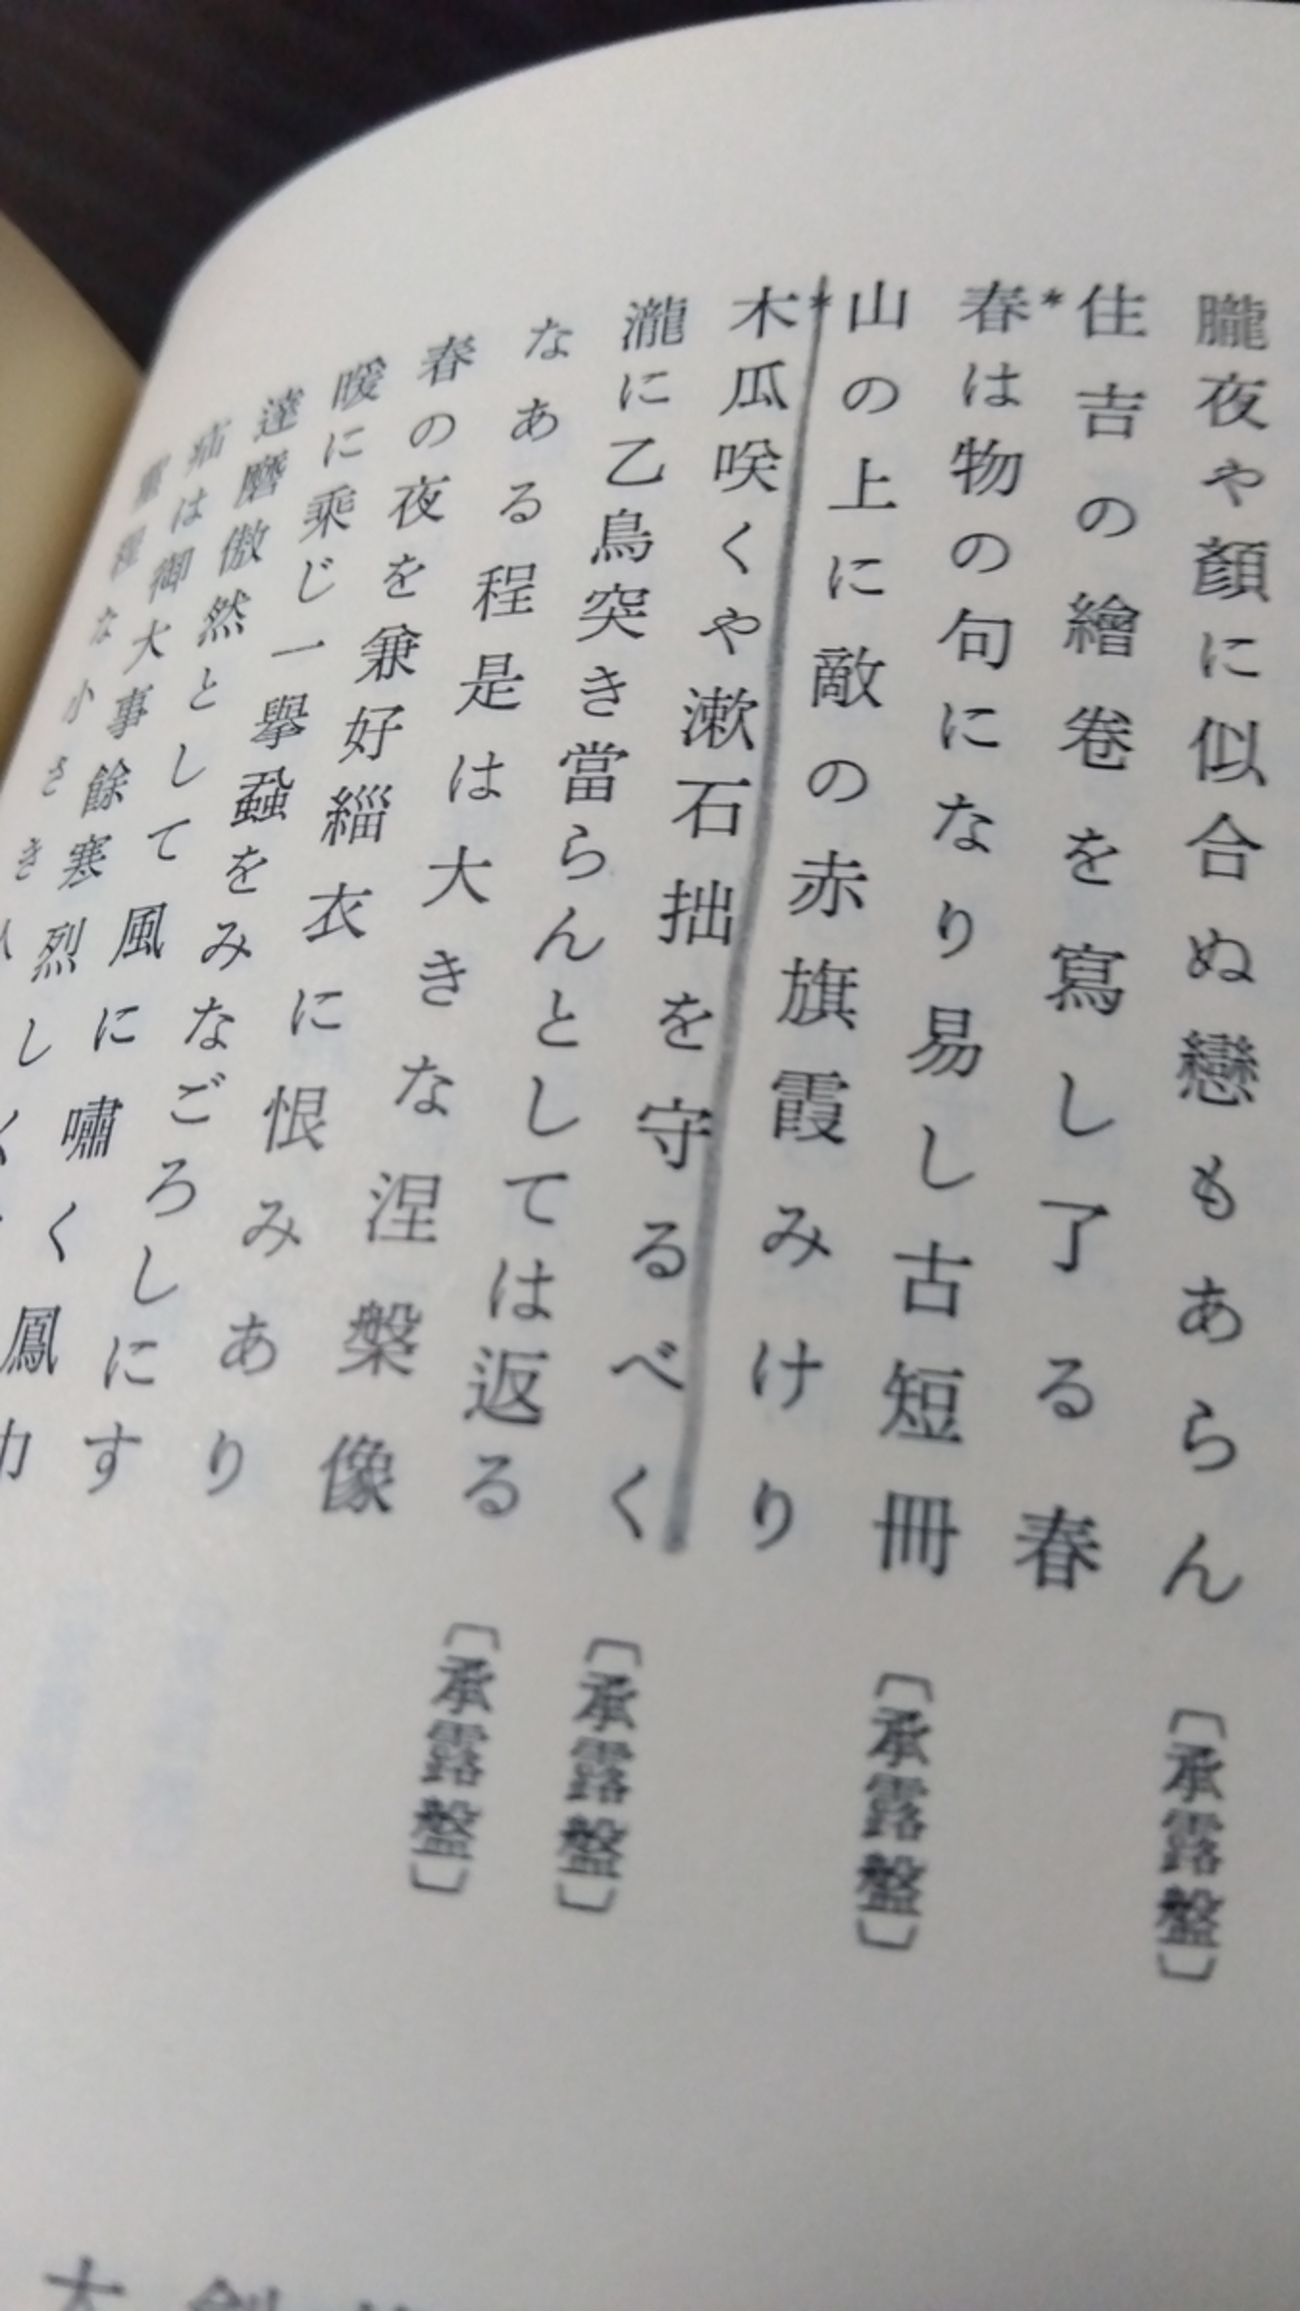 朧夜や顏に似合ぬ戀もあらん〔承露盤〕
住吉の繪卷を寫し了る春
*春は物の句になり易し古短冊〔承露盤〕
山の上に敵の赤旗霞みけり
*木瓜咲くや漱石拙を守るべく〔承露盤〕
瀧に乙鳥突き當らんとしては返る〔承露盤〕
なある程是は大きな涅槃像
春の夜を兼好緇衣に恨みあり
暖に乘じ一擧蝨をみなごろしにす
達磨傲然として風に嘯く鳳巾
疝は御大事餘寒烈しく
菫程な小さき人